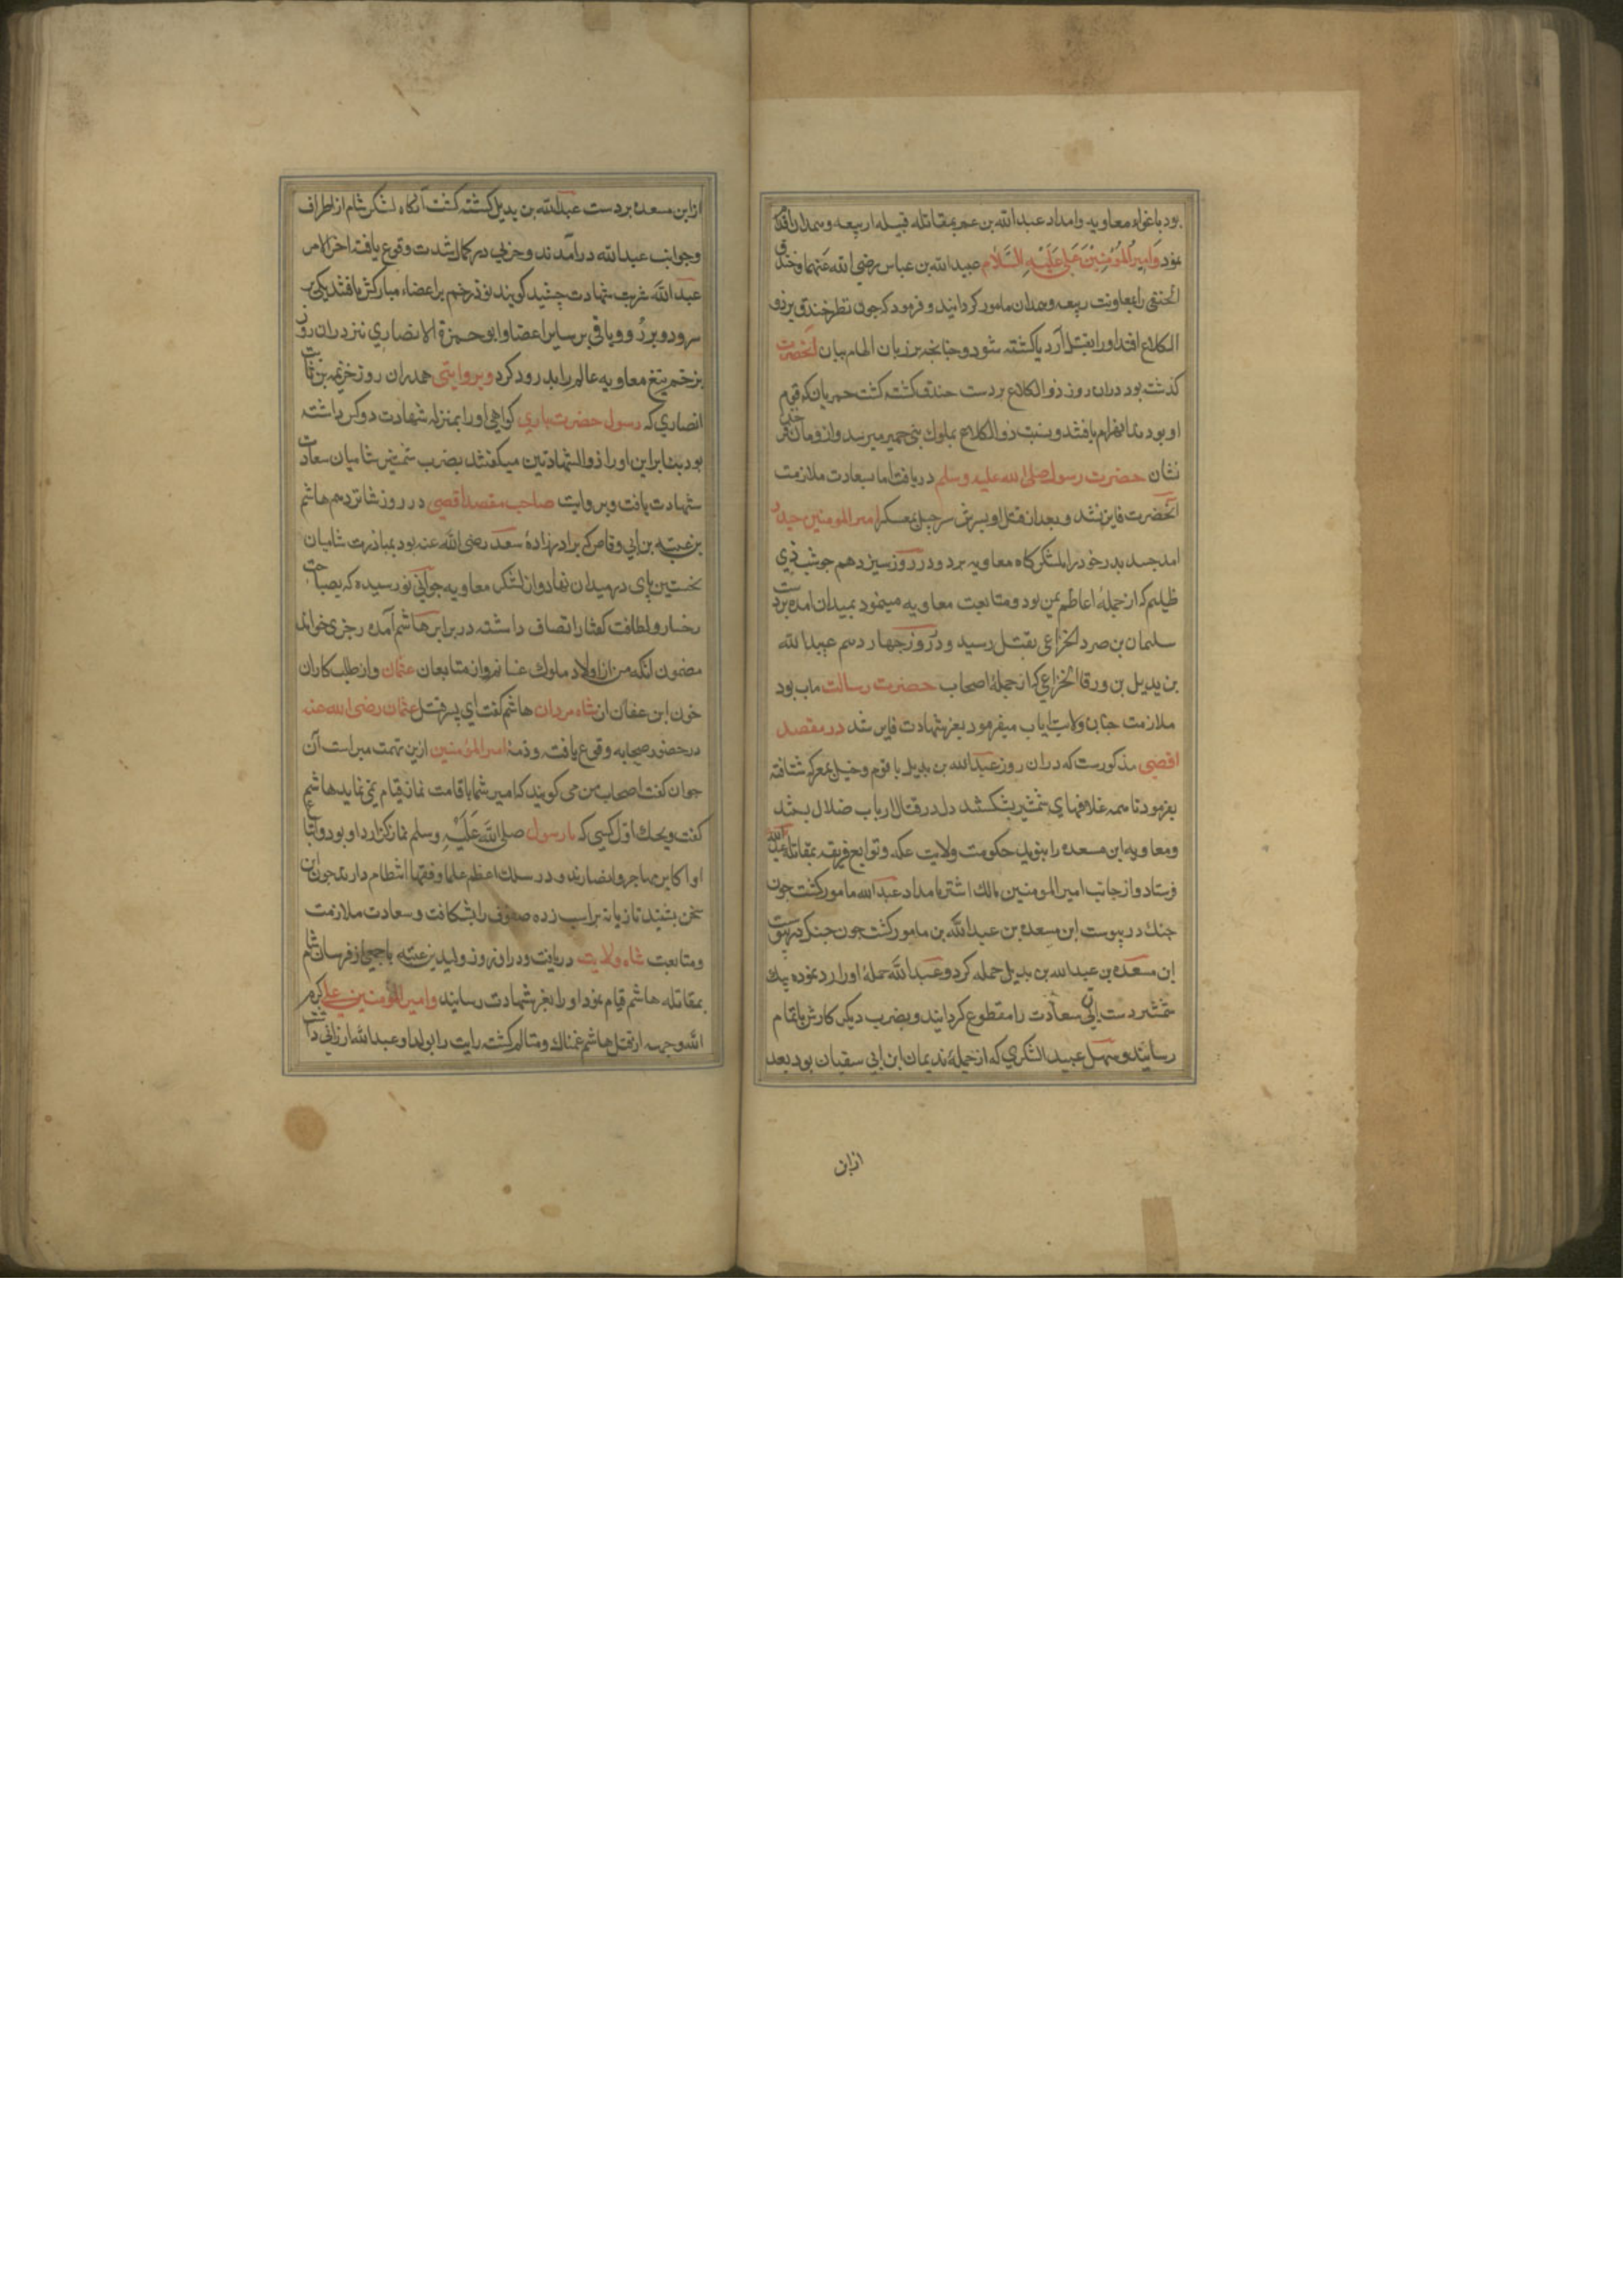 بود باغواء معاویه و امداد عبدالله بن عمر بمقاتله قبیله ربیعه و همدان اقدام
نمود وَاَمِیرُالمُؤمِنِیْنَ عَلِی عَلَیْهِ السَّلَام عبیدالله بن عباس رضی الله عنهما و خندق
الحنفی را بمعاونت ربیعه و همدان مامور کردانید و فرمود که چون نظر خندق بر ذو
الکلاع افتد او را بقتل آرد یا کشته شود و چنانچه بر زبان الهام بیان آنحضرت
کذشت بود دران روز ذوالکلاع بر دست خندق کشته کشت حمیریان که قوم
او بودند انهزام یافتند و نسبت ذوالکلاع بملوک بنی حمیر میرسد و از فرمان
نشان حضرت رسول صلی الله علیه وسلم دریافت اما بسعادت ملازمت
آنحضرت فایز نشد و بعد از قتل او پسرش سرجیل بمعسکر امیر المومنین حیدر
امد جسد پدر خود را بلشکرکاه معاویه برد و در روز سیزدهم جوشب ذی
ظلیم که از جملهٔ اعاظم یمن بود و متابعت معاویه مینمود بمیدان امده بر دست
سلیمان بن صرد الخزاعی بقتل رسید و در روز چهاردهم عبدالله
بن بدیل بن ورقا الخزاعی که از جملهٔ اصحاب حضرت رسالت ماب بود
ملازمت جناب ولایت ایاب میفرمود بعز شهادت فایز شد در مقصد
اقصی مذکورست که دران روز عبدالله بن بدیل با قوم و خیل بمعرکه شتافته
بفرمود تا همه غلافهای شمشیر بشکستند دل در قتال ارباب ضلال بستند
و معاویه ابن مسعده را بنوید حکومت ولایت عکه و توابع فریفته بمقاتله عبدالله
فرستاد و از جانب امیر المومنین مالک اشتر بامداد عبدالله مامور کشت چون
جنک در پیوست ابن مسعده بن عبدالله بن مامور کشت چون جنک در پیوست
ابن مسعده بن عبدالله بن بدیل حمله کرد و عبدالله حملهٔ او را رد نموده بیک
شمشیر دست ان بی سعادت را مقطوع کردانید و بضرب دیکر کارش باتمام
رسانید و سهل عبید الشکری که از جملهٔ ندیمان ابن ابی سفیان بود بعد
از ابن
از ابن مسعده بر دست عبدالله بن بدیل کشته کشت آنکاه لشکر شام از اطراف
و جوانب عبدالله درآمدند و حربی در کمال شدت وقوع یافت اخر الامر
عبدالله شربت شهادت چشید کویند نوذ زخم بر اعضاء مبارکش یافتند یکی بر
سر و دو بر رُو و باقی بر سایر اعضا و ابو حمزة الانصاری نیز دران روز
بزخم تیغ معاویه عالم را بدرود کرد و بروایتی همدران روز خزیمه بن ثابت
انصاری که رسول حضرت باری کواهی او را بمنزله شهادت دو کس داشته
بود بنابراین او را ذوالشهادتین میکفتند بضرب شمشیر شامیان سعادت
شهادت یافت و بروایت صاحب مقصد اقصی در روز شانزدهم هاشم
بن عتبه بن ابی وقاص که برادر زادهٔ سعد رضی الله عنه بود بمبارزت شامیان
نخستین پای در میدان نهاد و از لشکر معاویه جوانی نورسیده که بصباحت
رخسار و لطافت کفتار اتصاف داشته در برابر هاشم آمده رجزی خواند
مضمون آنکه من از اولاد ملوک غسانم و از متابعان عثمان و از طلب کاران
خون ابن عفان از شاه مردان هاشم کفت ای پسر قتل عثمان رضی الله عنه
در حضور صحابه وقوع یافت و ذمهٔ امیر المؤمنین ازین تهمت مبراست آن
جوان کفت اصحاب من می کویند که امیر شما باقامت نماز قیام نمی نماید هاشم
کفت ویحک اول کسی که با رسول صلی الله عَلَیْهِ وسلم نماز کزارد او بود و اتباع
او اکابر مهاجر و انصارند و در سلک اعظم علما و فقها انتظام دارند جوان ان
سخن بشنید تازیانه بر اسب زده صفوف را بشکافت و سعادت ملازمت
و متابعت شاه ولایت دریافت و دران روز ولید بن عتبه با جمعی از فرسان شام
بمقاتله هاشم قیام نمود او را بعز شهادت رسانید و امیر المؤمنین علی کرم
الله وجهه از قتل هاشم غمناک و متالم کشته رایت را بولد او عبدالله ارزانی داشت